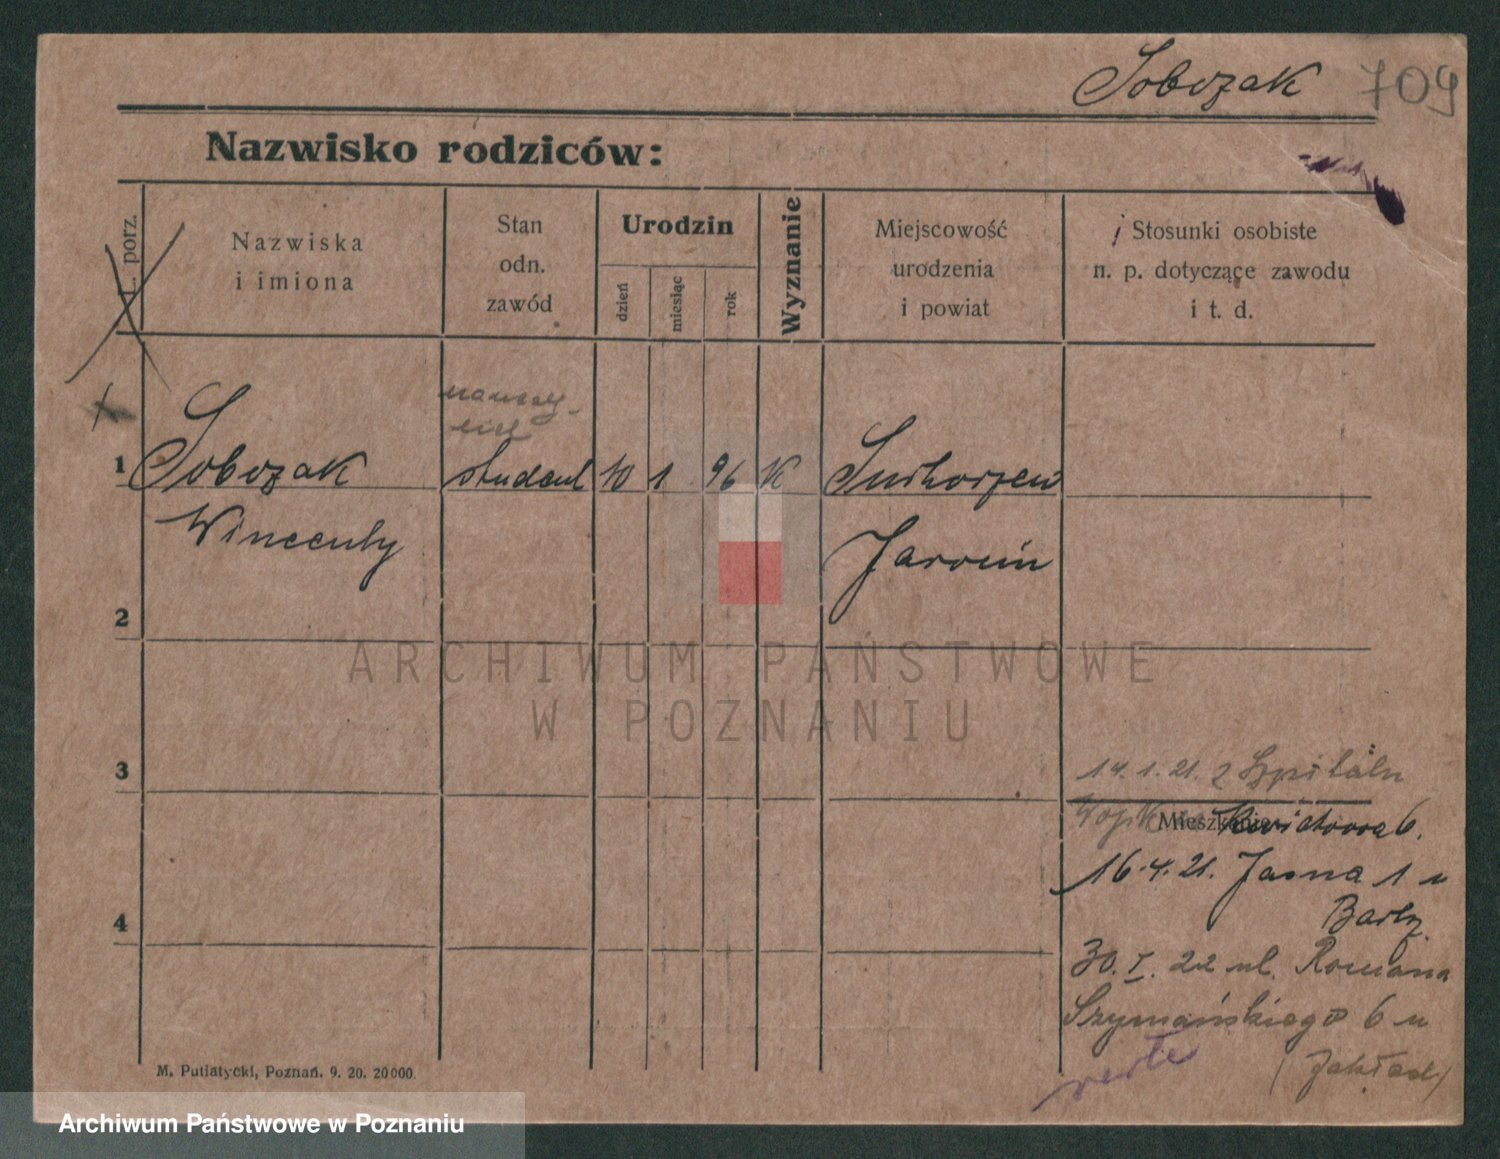 Sobczak 709
Nazwisko rodziców:
L. porz.
Nazwiska
i imiona
Stan
odn.
zawód
Urodzin
dzień
miesiąc
rok
Wyznanie
Miejscowość
urodzenia
i powiat
Stosunki osobiste
n. p. dotyczące zawodu
i t. d.
nauczy-
ciel
1 Sobczak student 10 1 96 K Suchorzew
Wincenty Jarocin
2
3
4
14.1.21. z Szpitala
Mieszkanie
6.
16.4.21. Jasna 1 u
30.I.22 ul. Romana
Szymańskiego 6 u
verte
(Zakład)
M. Putiatycki, Poznań. 9. 20. 20000.
ARCHIWUM PAŃSTWOWE
W POZNANIU
Archiwum Państwowe w Poznaniu